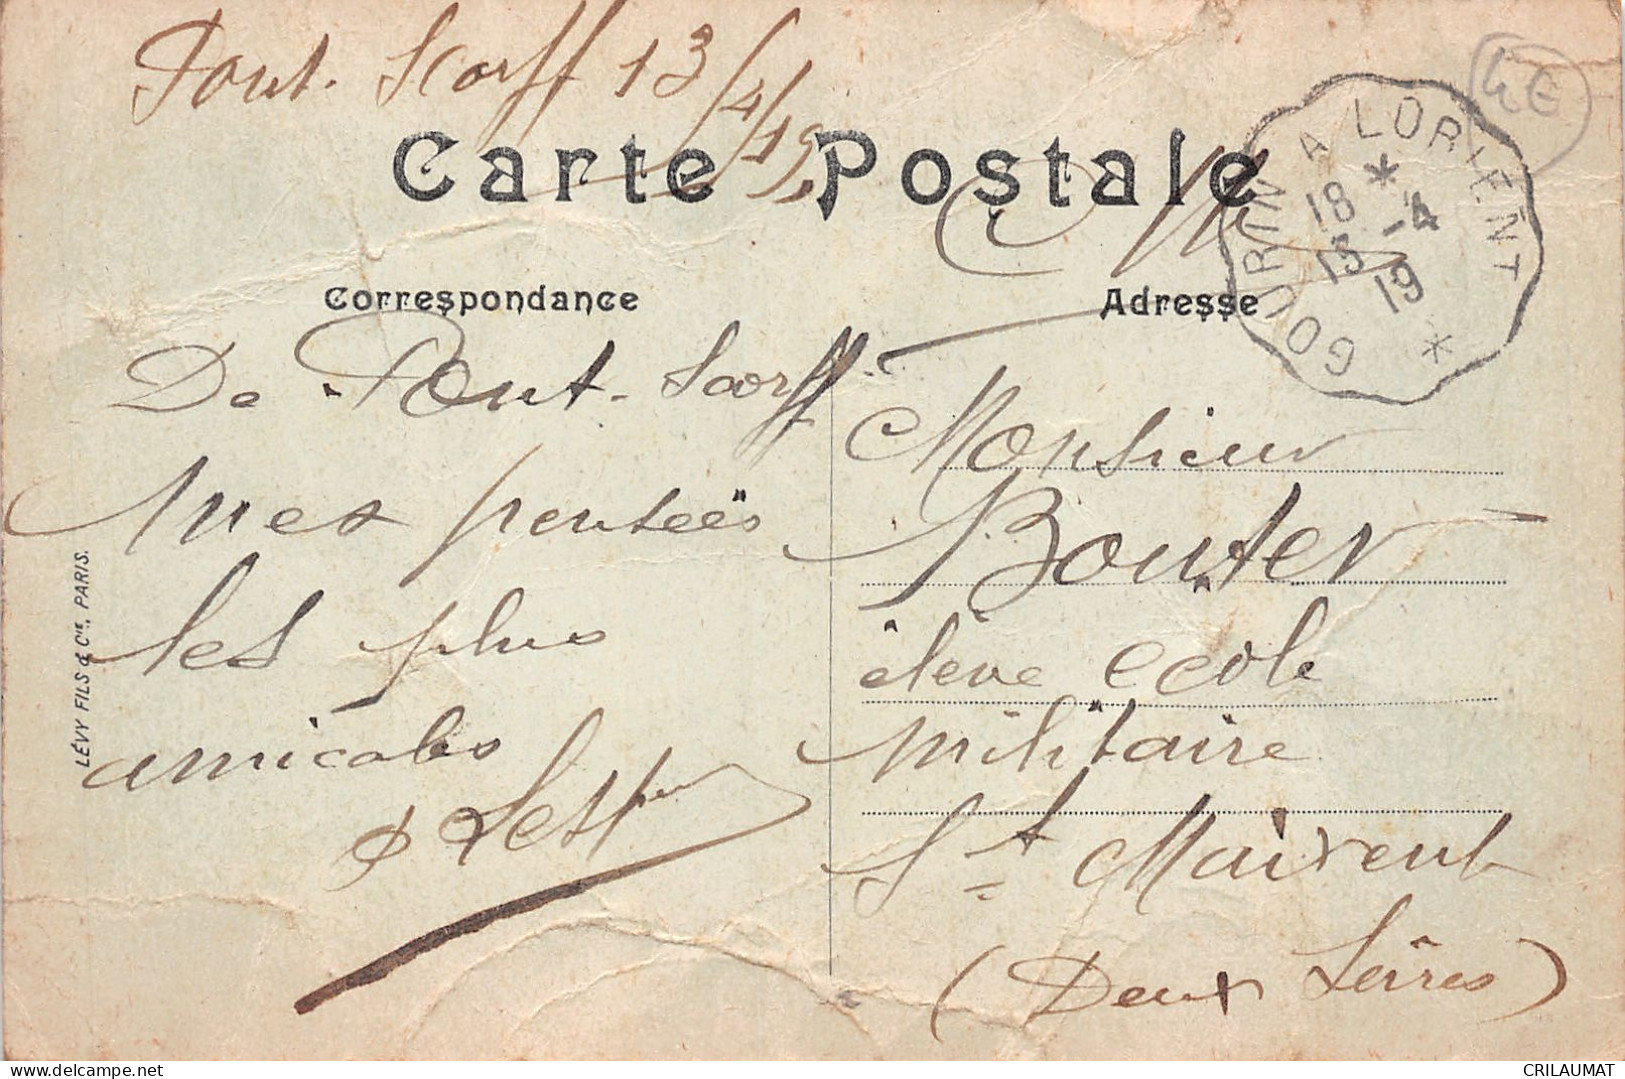 Pont. Scorff 13/4/19
4€
Carte Postale
GOURIN A LORIENT
18 *
13 -4
19
*
Correspondance
Adresse
De Pont. Scorff
mes pensées
les plus
amicales
LÉVY FILS & Cie, PARIS.
Monsieur
Bouter
élève école
militaire
St Maixent
(Deux Sèvres)
CRILAUMAT